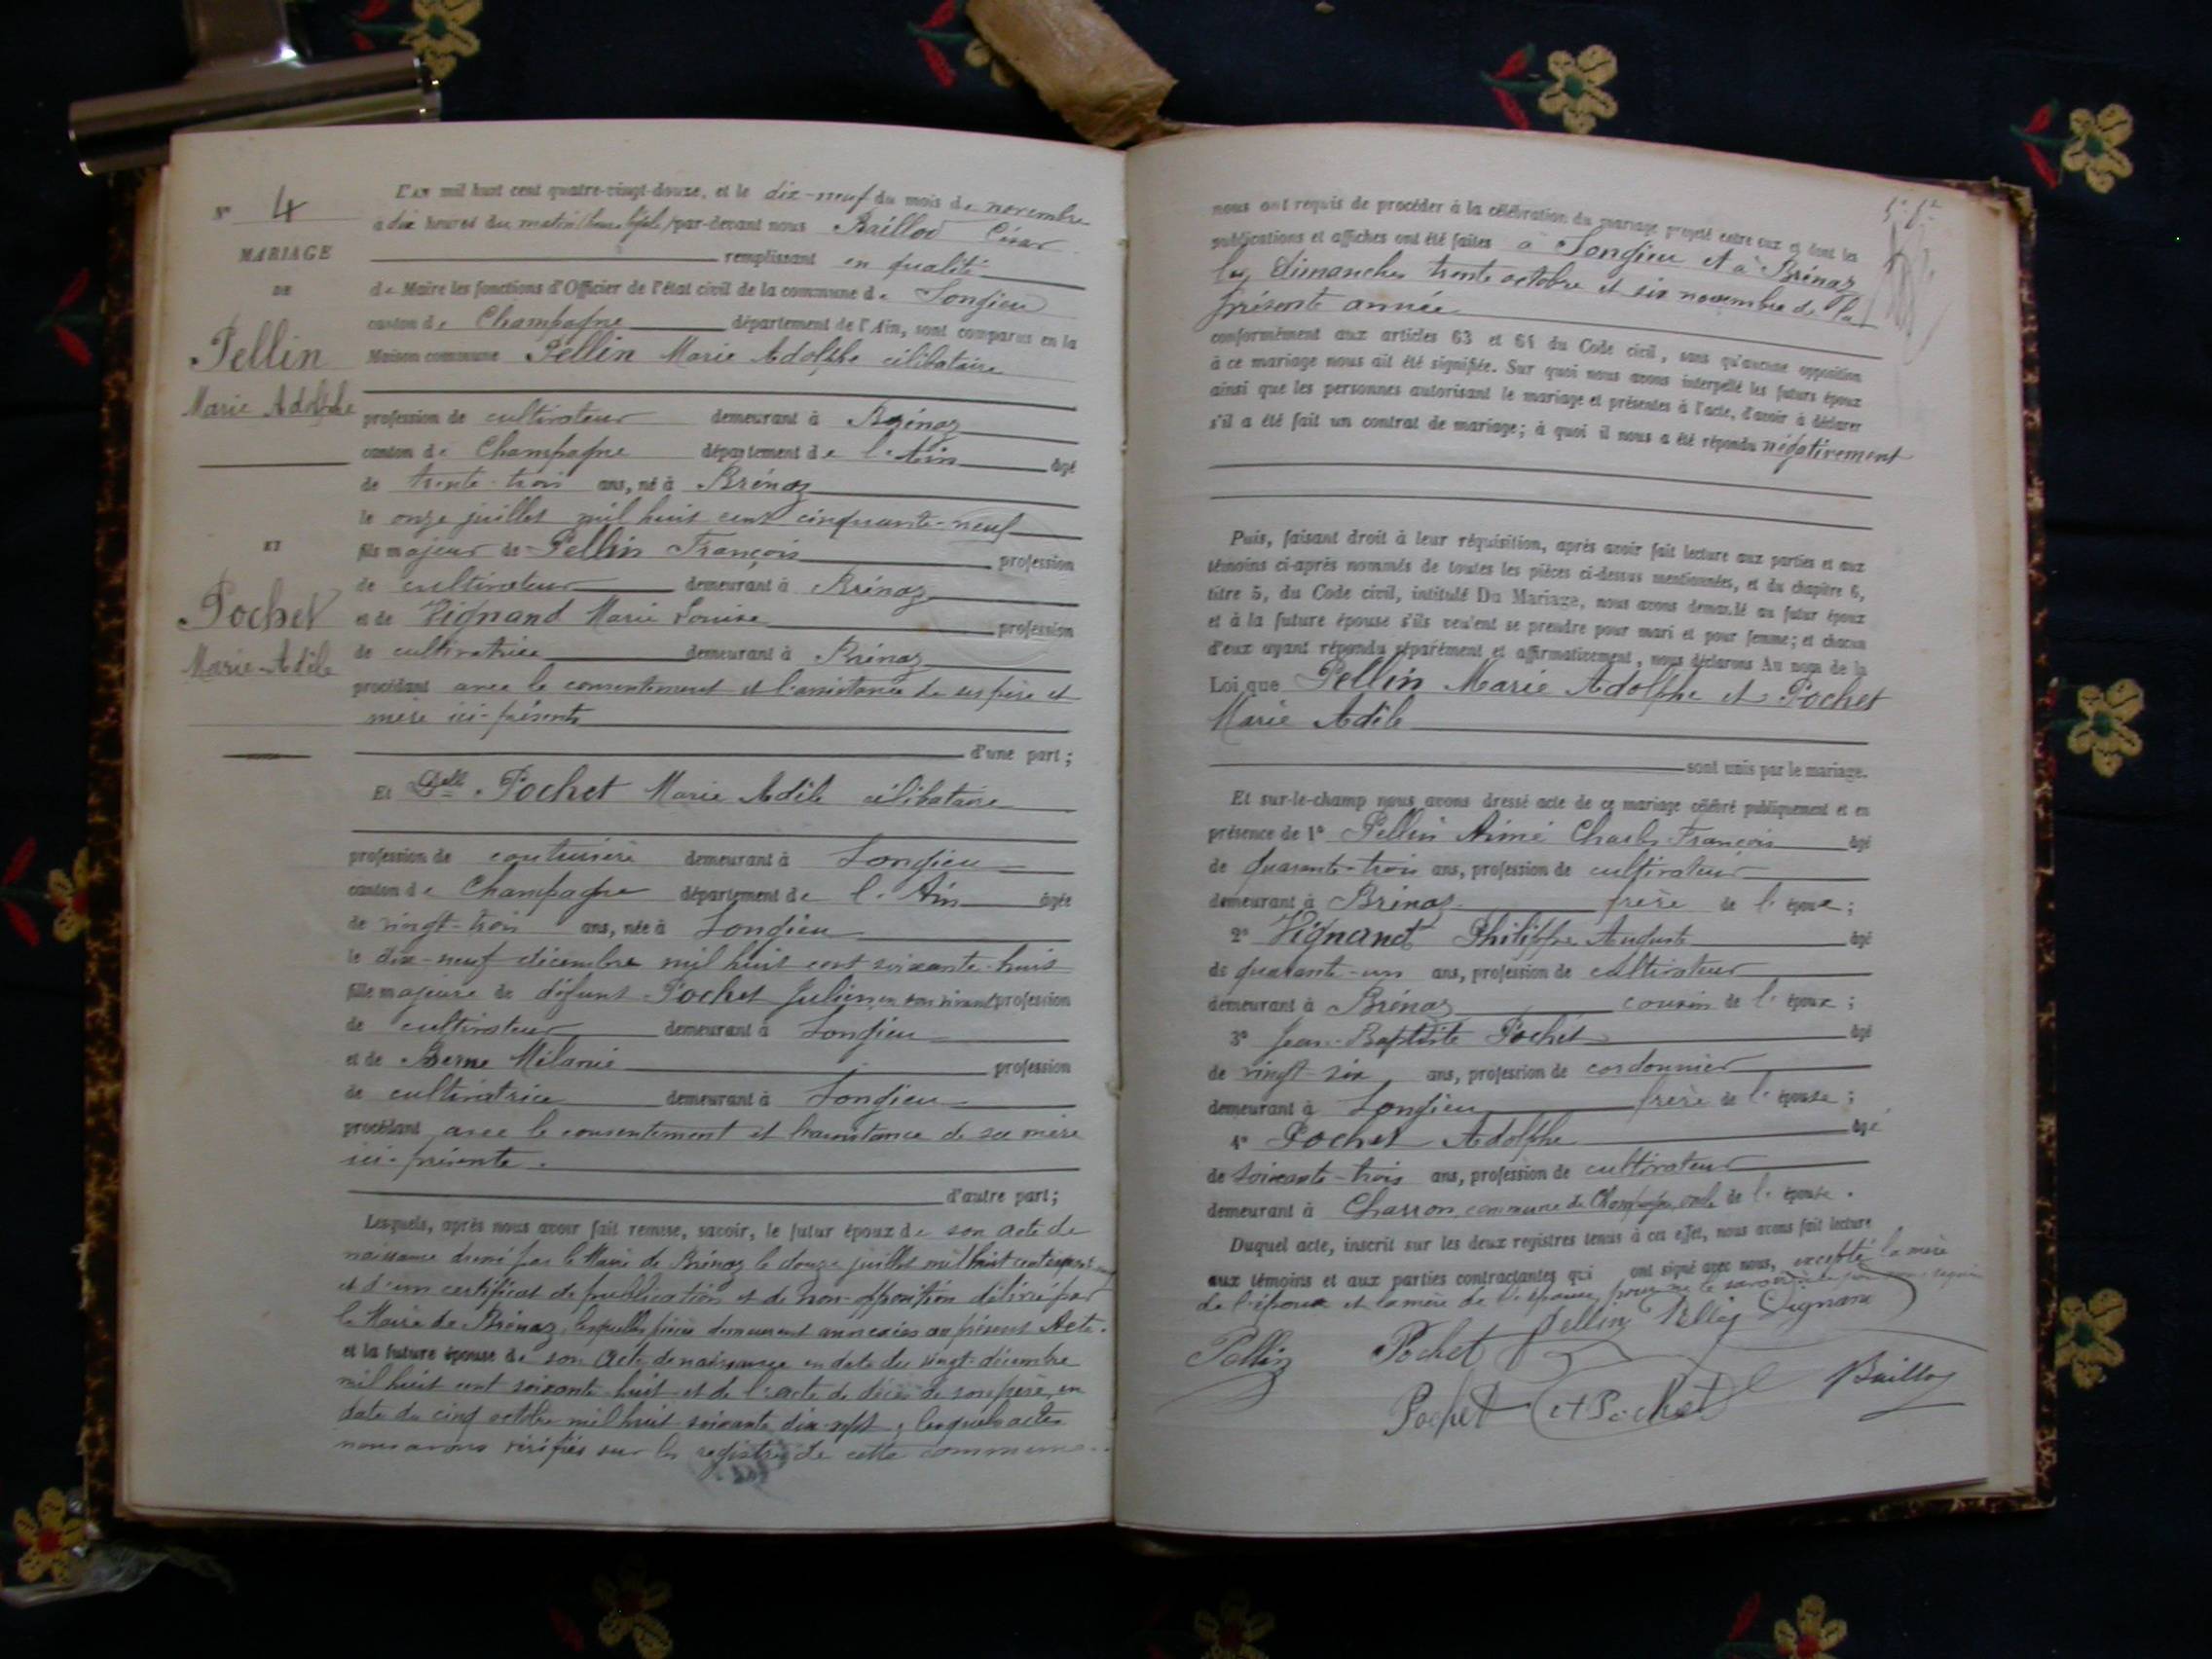 N° 4
MARIAGE
DE
Pellin
Marie Adolphe
ET
Pochet
Marie Adèle
L'AN mil huit cent quatre-vingt-douze, et le dix-neuf du mois de novembre
à dix heures du matin (heure légale) par-devant nous Baillod César
remplissant en qualité
de Maire les fonctions d'Officier de l'état civil de la commune de Songieu
canton de Champagne département de l'Ain, sont comparus en la
Maison commune Pellin Marie Adolphe célibataire
profession de cultivateur demeurant à Brénaz
canton de Champagne département de l'Ain âgé
de trente-trois ans, né à Brénaz
le onze juillet mil huit cent cinquante-neuf
fils majeur de Pellin François profession
de cultivateur demeurant à Brénaz
et de Vignand Marie Louise profession
de cultivatrice demeurant à Brénaz
procédant avec le consentement et l'assistance de ses père et
mère ici-présents
d'une part ;
Et Delle Pochet Marie Adèle célibataire
profession de couturière demeurant à Songieu
canton de Champagne département de l'Ain âgée
de vingt-trois ans, née à Songieu
le dix-neuf décembre mil huit cent soixante-huit
fille majeure de défunt Pochet Julien, en son vivant profession
de cultivateur demeurant à Songieu
et de Berne Mélanie profession
de cultivatrice demeurant à Songieu
procédant avec le consentement et l'assistance de sa mère
ici-présente.
d'autre part ;
Lesquels, après nous avoir fait remise, savoir, le futur époux de son acte de
naissance dressé par le Maire de Brénaz le douze juillet mil huit cent
et d'un certificat de publication et de non-opposition délivré par
le Maire de Brénaz, lesquelles pièces demeurent annexées au présent Acte.
et la future épouse de son acte de naissance en date du vingt décembre
mil huit cent soixante-huit et de l'acte de décès de son père, en
date du cinq octobre mil huit soixante dix-sept, lesquels actes
nous avons vérifiés sur les registres de cette commune.
nous ont requis de procéder à la célébration du mariage projeté entre eux et dont les
publications et affiches ont été faites à Songieu et à Brénaz
les dimanches trente octobre et six novembre de la
présente année
conformément aux articles 63 et 64 du Code civil, sans qu'aucune opposition
à ce mariage nous ait été signifiée. Sur quoi nous avons interpellé les futurs époux
ainsi que les personnes autorisant le mariage et présentes à l'acte, d'avoir à déclarer
s'il a été fait un contrat de mariage ; à quoi il nous a été répondu négativement
Puis, faisant droit à leur réquisition, après avoir fait lecture aux parties et aux
témoins ci-après nommés de toutes les pièces ci-dessus mentionnées, et du chapitre 6,
titre 5, du Code civil, intitulé Du Mariage, nous avons demandé au futur époux
et à la future épouse s'ils veulent se prendre pour mari et pour femme ; et chacun
d'eux ayant répondu séparément et affirmativement, nous déclarons Au nom de la
Loi que Pellin Marie Adolphe et Pochet
Marie Adèle
sont unis par le mariage.
Et sur-le-champ nous avons dressé acte de ce mariage célébré publiquement et en
présence de 1° Pellin Aimé Charles François âgé
de quarante-trois ans, profession de cultivateur
demeurant à Brénaz frère de l'époux ;
2° Vignand Philippe Auguste âgé
de quarante-un ans, profession de cultivateur
demeurant à Brénaz cousin de l'époux ;
3° Jean-Baptiste Pochet âgé
de vingt-six ans, profession de cordonnier
demeurant à Songieu frère de l'épouse ;
4° Pochet Adolphe âgé
de soixante-trois ans, profession de cultivateur
demeurant à Charron, commune de Champagne, oncle de l'épouse.
Duquel acte, inscrit sur les deux registres tenus à cet effet, nous avons fait lecture
aux témoins et aux parties contractantes qui ont signé avec nous, excepté la mère
de l'époux et la mère de l'épouse, pour ne le savoir
Pellin Pellin Vignand
Pellin Pochet
Pochet A Pochet Baillod